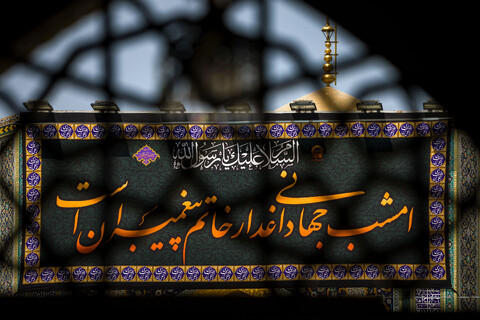 السلام علیک یا رسول الله
امشب جهانی داغدار خاتم پیغمبران است